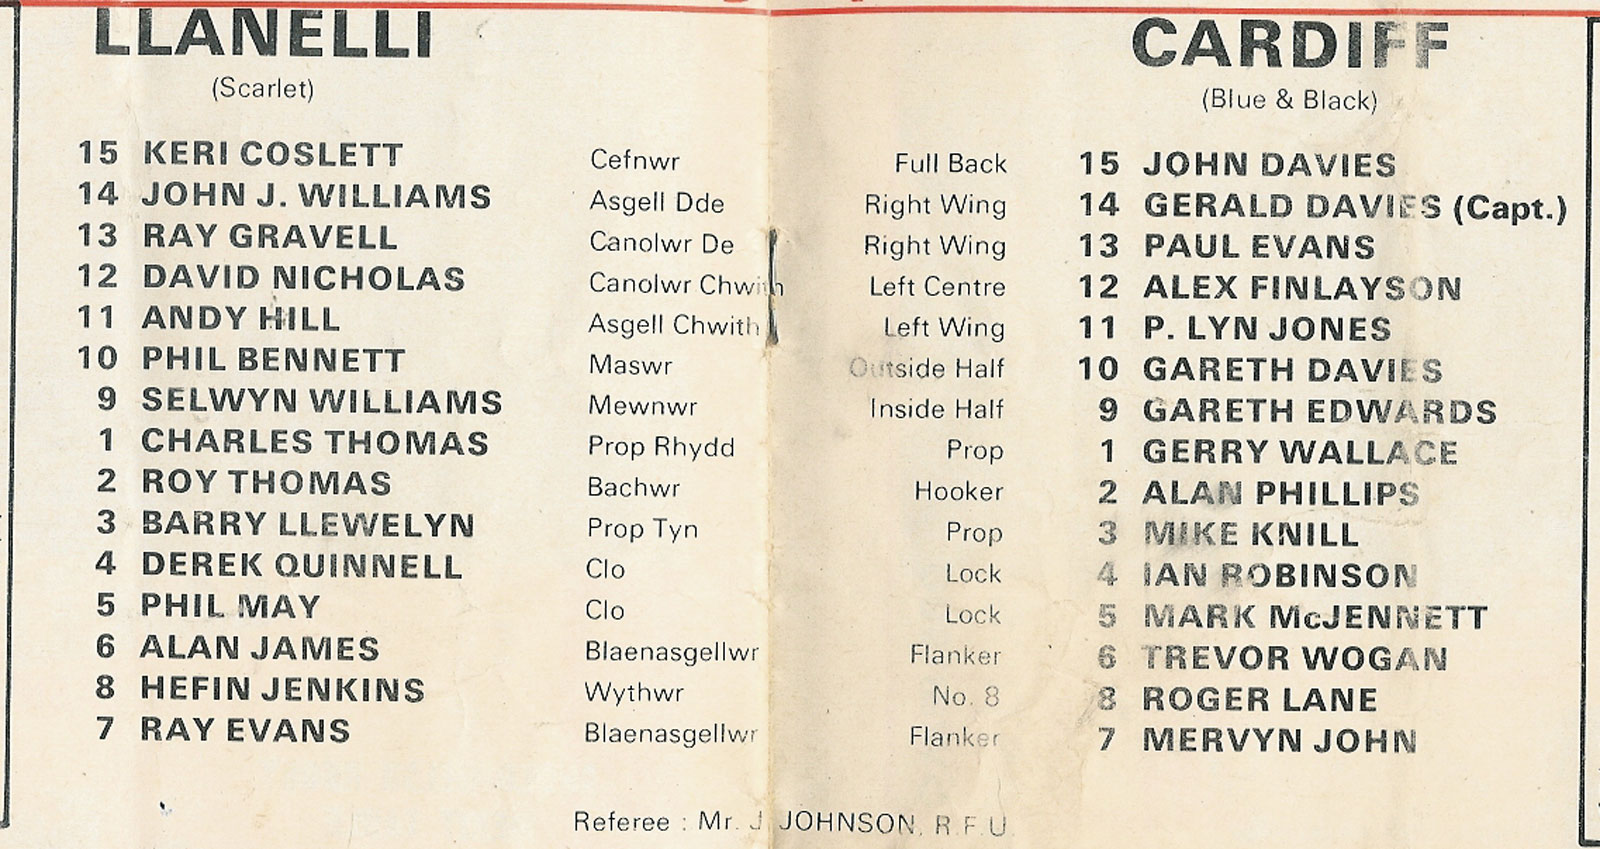 LLANELLI CARDIFF
(Scarlet) (Blue & Black)
15 KERI COSLETT Cefnwr Full Back 15 JOHN DAVIES
14 JOHN J. WILLIAMS Asgell Dde Right Wing 14 GERALD DAVIES (Capt.)
13 RAY GRAVELL Canolwr De Right Wing 13 PAUL EVANS
12 DAVID NICHOLAS Canolwr Chwith Left Centre 12 ALEX FINLAYSON
11 ANDY HILL Asgell Chwith Left Wing 11 P. LYN JONES
10 PHIL BENNETT Maswr Outside Half 10 GARETH DAVIES
9 SELWYN WILLIAMS Mewnwr Inside Half 9 GARETH EDWARDS
1 CHARLES THOMAS Prop Rhydd Prop 1 GERRY WALLACE
2 ROY THOMAS Bachwr Hooker 2 ALAN PHILLIPS
3 BARRY LLEWELYN Prop Tyn Prop 3 MIKE KNILL
4 DEREK QUINNELL Clo Lock 4 IAN ROBINSON
5 PHIL MAY Clo Lock 5 MARK McJENNETT
6 ALAN JAMES Blaenasgellwr Flanker 6 TREVOR WOGAN
8 HEFIN JENKINS Wythwr No. 8 8 ROGER LANE
7 RAY EVANS Blaenasgellwr Flanker 7 MERVYN JOHN
Referee : Mr. J JOHNSON, R.F.U.